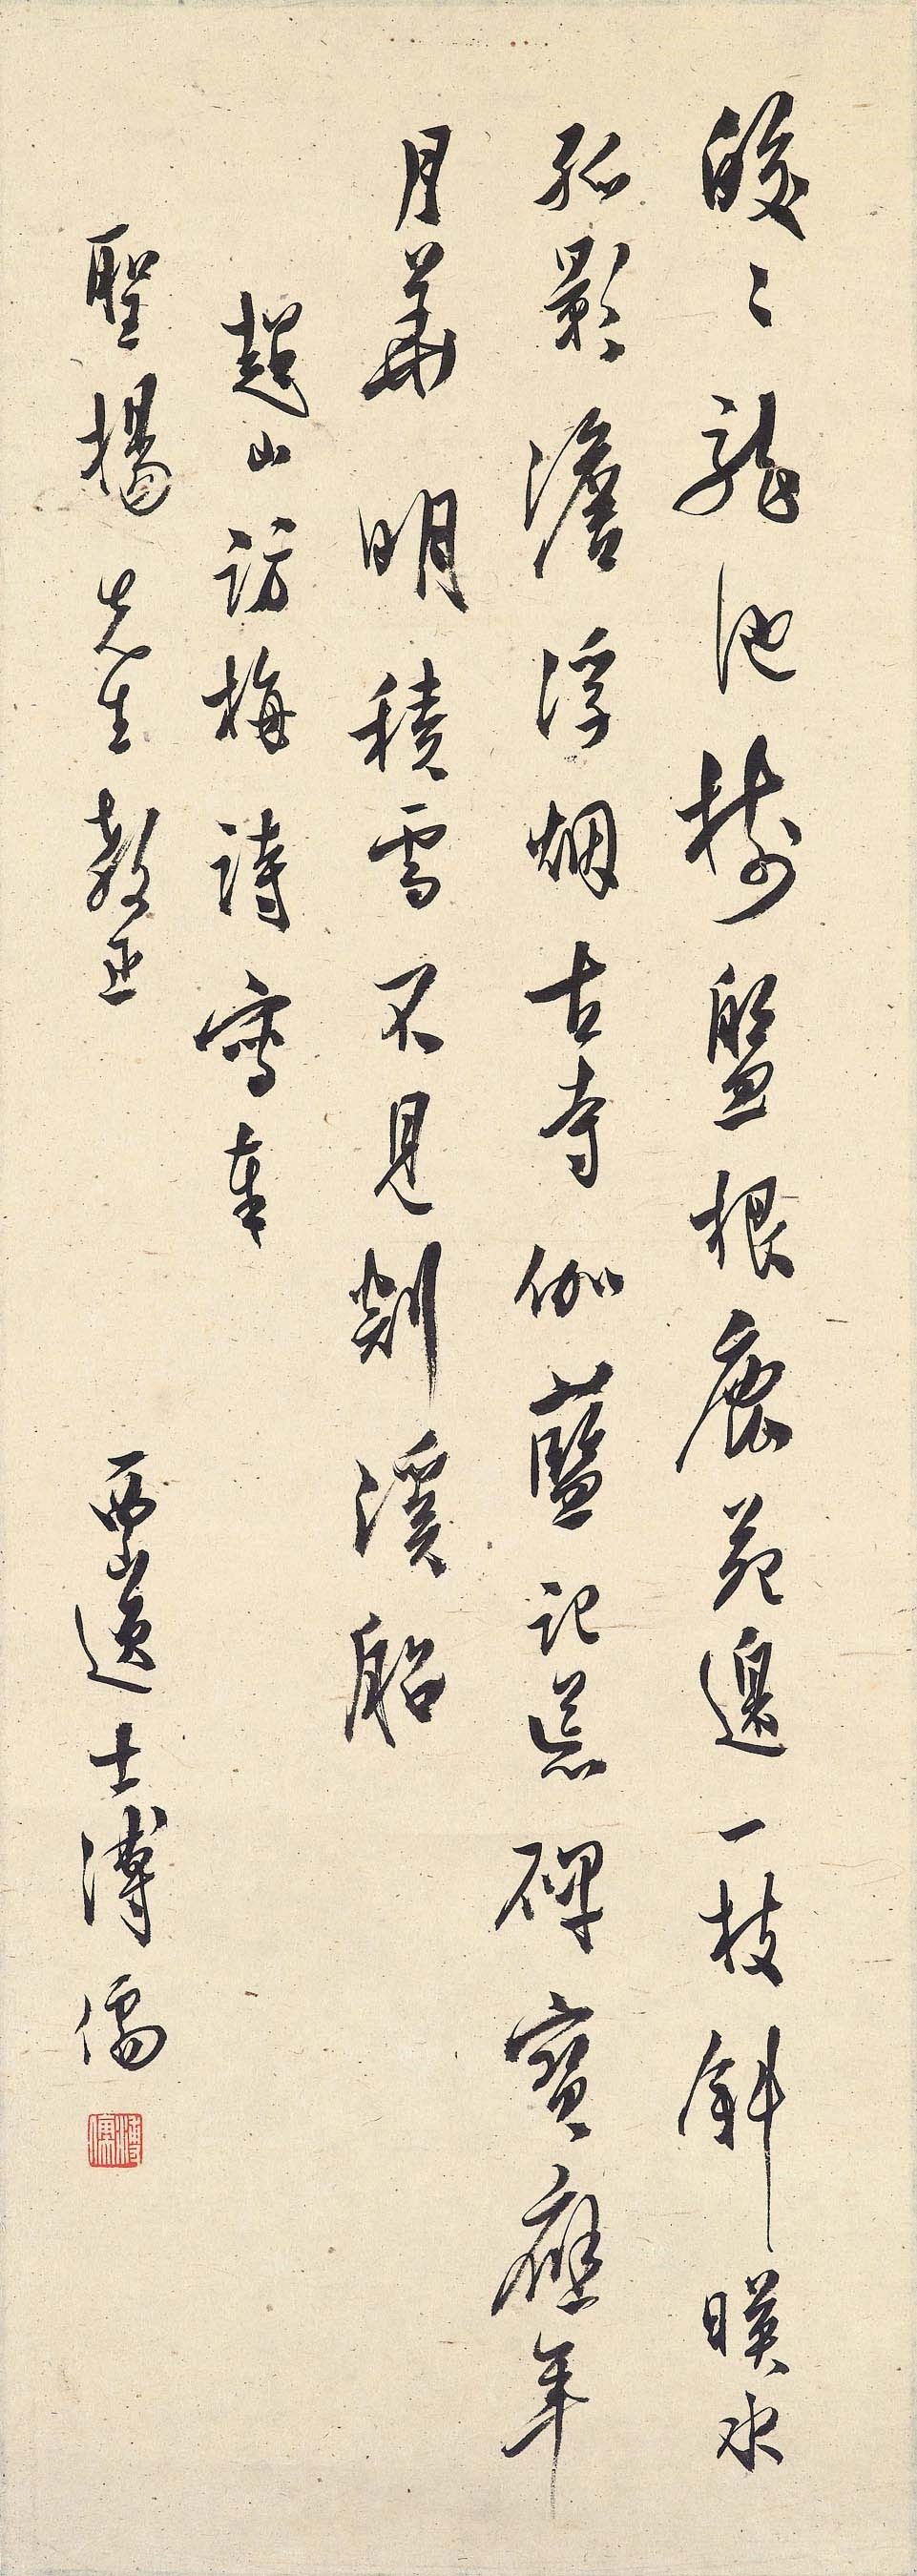 皎〻龍池樹盤根鹿苑邊一枝斜暎水
孤影澹浮烟古寺伽藍記荒碑寶應年
月華明積雪不見剡溪船
超山訪梅詩寫奉
聖揚先生教正
西山逸士溥儒
溥儒